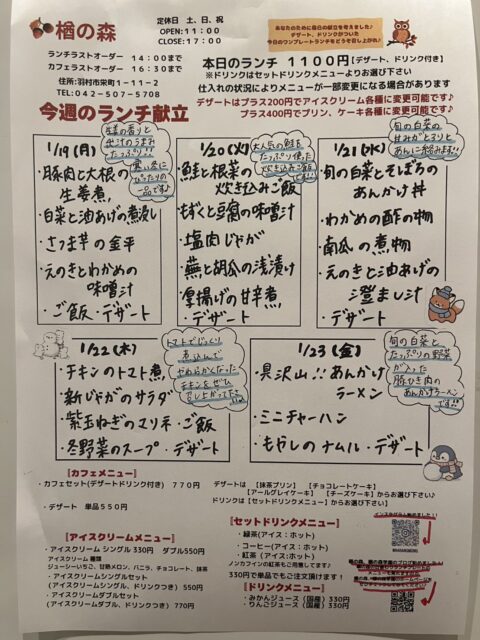 楢の森
定休日 土、日、祝
OPEN:11:00
CLOSE:17:00
ランチラストオーダー 14:00まで
カフェラストオーダー 16:30まで
住所:羽村市栄町1-11-2
TEL:042-507-5708
あなたのために毎日の献立を考えました♪
デザート、ドリンクがついた
今日のワンプレートランチをどうぞ召し上がれ♪
本日のランチ 1100円【デザート、ドリンク付き】
※ドリンクはセットドリンクメニューよりお選び下さい
仕入れの状況によりメニューが一部変更になる場合があります
デザートはプラス200円でアイスクリーム各種に変更可能です♪
プラス400円でプリン、ケーキ各種に変更可能です♪
今週のランチ献立
1/19(月)
生姜の香りと
出汁のうまみ
たっぷり!!
寒い冬に
ぴったりの
一品です♪
・豚肉と大根の
生姜煮
・白菜と油あげの煮浸し
・さつま芋の金平
・えのきとわかめの
味噌汁
・ご飯・デザート
1/20(火)
大人気の鮭を
たっぷり使った
炊き込みご飯
です!!
・鮭と根菜の
炊き込みご飯
・もずくと豆腐の味噌汁
・塩肉じゃが
・蕪と胡瓜の浅漬け
・厚揚げの甘辛煮
・デザート
1/21(水)
旬の白菜の
甘みがギュッと
あんに絡みます!!
・旬の白菜とそぼろの
あんかけ丼
・わかめの酢の物
・南瓜の煮物
・えのきと油あげの
澄まし汁
・デザート
1/22(木)
トマトでじっくり
煮込んで
やわらかくなった
チキンをぜひ
召し上がって下さい
・チキンのトマト煮
・新じゃがのサラダ
・紫玉ねぎのマリネ・ご飯
・冬野菜のスープ・デザート
1/23(金)
旬の白菜と
たっぷりの野菜
が入った
豚ひき肉の
あんかけラーメン
です!!
・具沢山!!あんかけ
ラーメン
・ミニチャーハン
・もやしのナムル・デザート
【カフェメニュー】
・カフェセット(デザートドリンク付き) 770円
・デザート 単品550円
デザートは 【抹茶プリン】 【チョコレートケーキ】
【アールグレイケーキ】 【チーズケーキ】からお選び下さい♪
ドリンクは【セットドリンクメニュー】からお選び下さい♪
【アイスクリームメニュー】
・アイスクリーム シングル330円 ダブル550円
アイスクリーム 種類
ジューシーいちご、甘熟メロン、バニラ、チョコレート、抹茶
・アイスクリームシングルセット
(アイスクリームシングル、ドリンクつき) 550円
・アイスクリームダブルセット
(アイスクリームダブル、ドリンクつき) 770円
【セットドリンクメニュー】
・緑茶(アイス:ホット)
・コーヒー(アイス:ホット)
・紅茶 (アイス:ホット)
ノンカフェインの紅茶もご用意してます♪
330円で単品でもご注文頂けます!
【ドリンクメニュー】
・みかんジュース(国産)330円
・りんごジュース(国産)330円
インスタグラム始めました!!